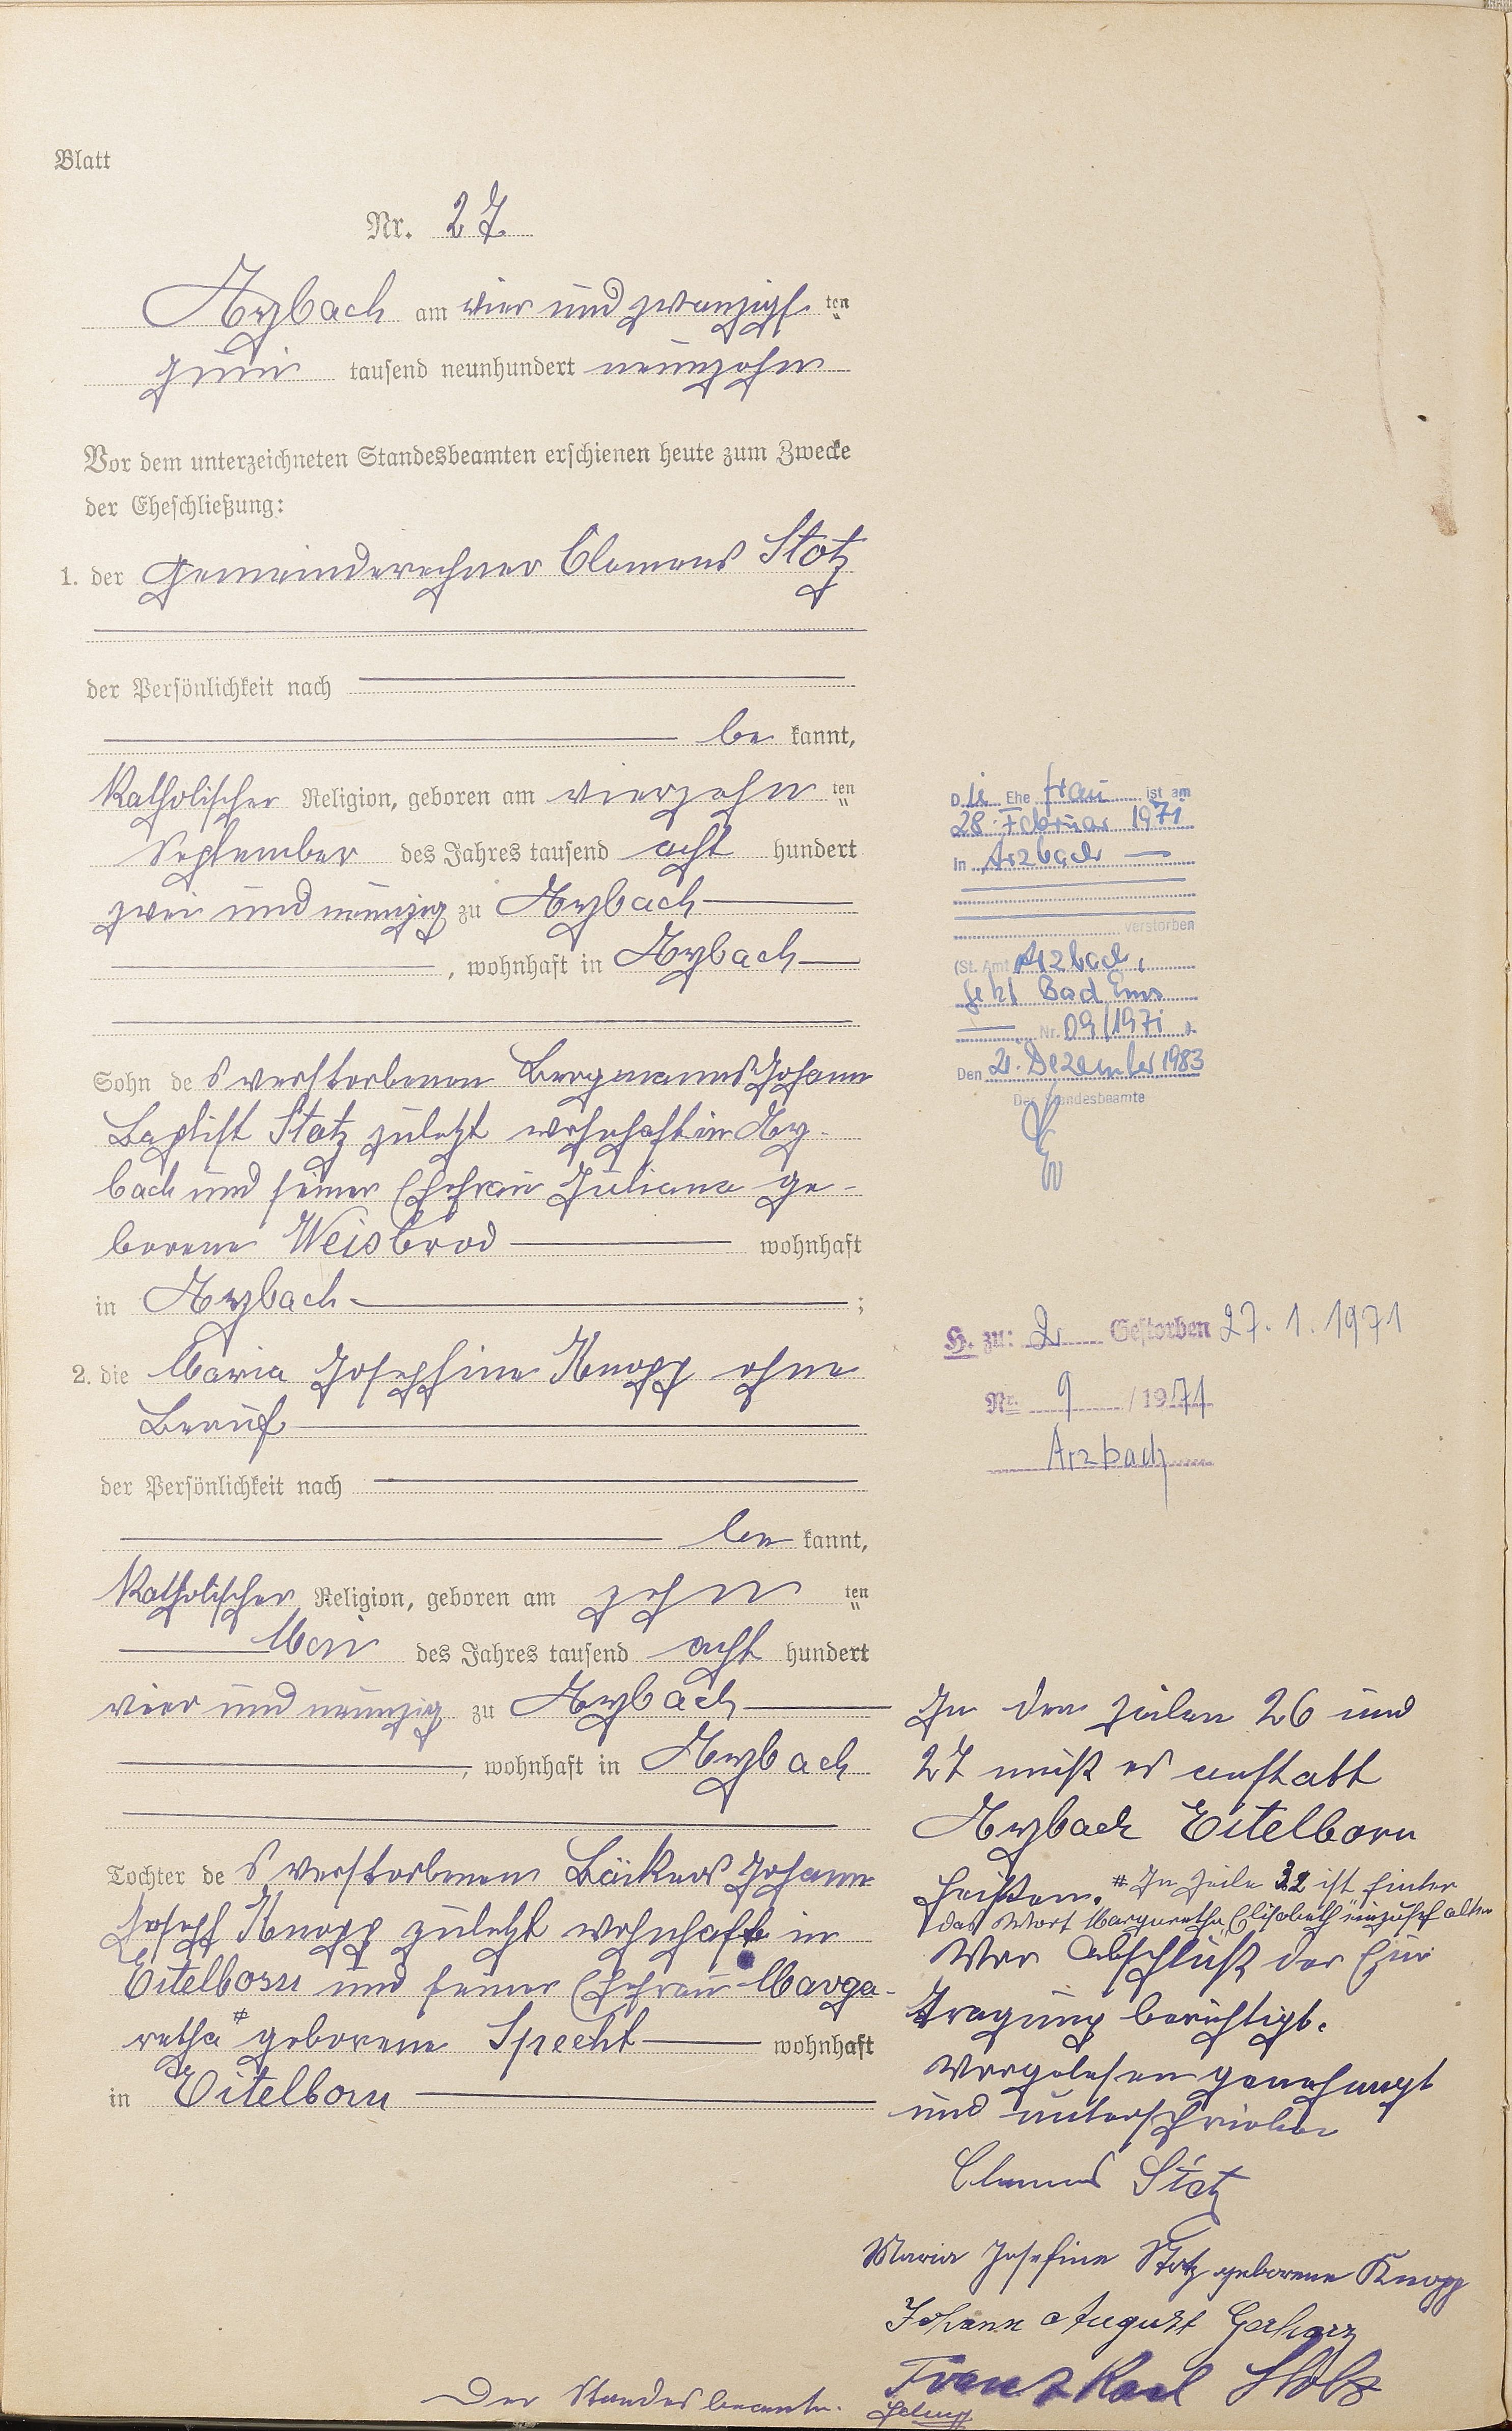 Blatt
Nr. 27.
Arzbach am vier und zwanzigs ten
Juni tausend neunhundert neunzehn
Vor dem unterzeichneten Standesbeamten erschienen heute zum Zwecke
der Eheschließung:
1. der Gemeinderechner Clemens Stotz
der Persönlichkeit nach
be kannt,
Katholischer Religion, geboren am vierzehn ten
September des Jahres tausend acht hundert
zwei und neunzig zu Arzbach
, wohnhaft in Arzbach
Sohn de s verstorbenen Bergmannes Johann
Baptist Stotz zuletzt wohnhaft in Arz-
bach und seiner Ehefrau Juliana ge-
borene Weisbrod wohnhaft
in Arzbach ;
2. die Maria Josephine Knopp ohne
Beruf
der Persönlichkeit nach
be kannt,
Katholischer Religion, geboren am zehn ten
Mai des Jahres tausend acht hundert
vier und neunzig zu Arzbach
, wohnhaft in Arzbach
Tochter de s verstorbenen Bäckers Johann
Joseph Knopp zuletzt wohnhaft in
Eitelborn und seiner Ehefrau Marga-
retha # geborene Specht wohnhaft
in Eitelborn
Die Ehe frau ist am
28. Februar 1971
in Arzbach
verstorben
(St. Amt Arzbach,
jetzt Bad Ems
Nr. 09/1971 ).
Den 21. Dezember 1983
Der Standesbeamte
H. zu: 2 Gestorben 27.1.1971
Nr. 9 / 1971
Arzbach
In den Zeilen 26 und
27 muß es anstatt
Arzbach Eitelborn
heißen. # In Zeile 32 ist hinter
das Wort Margaretha "Elisabeth" einzuschalten
Vor Abschluß der Ein-
tragung berichtigt.
Vorgelesen genehmigt
und unterschrieben
Clemens Stotz
Maria Josefine Stotz geborene Knopp
Johann August Gerharz
Franz Karl Stolz
Der Standesbeamte.